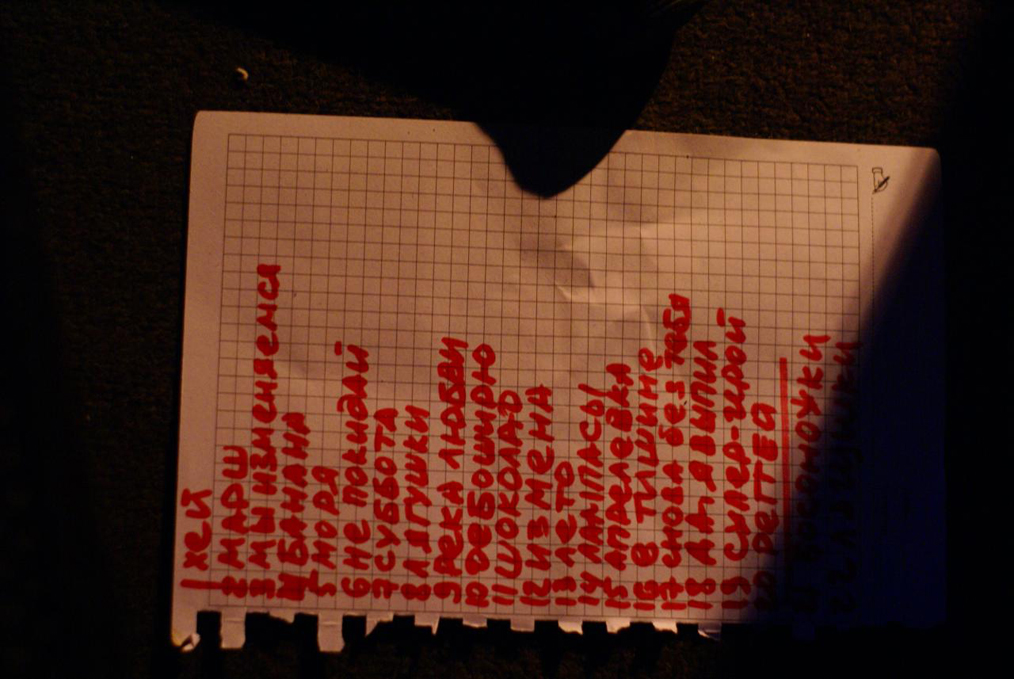 1 ХЕЙ
2 МАРШ
3 МЫ ИЗМЕНЯЕМСЯ
4 БАНАНА
5 МОРЯ
6 НЕ ПОКИДАЙ
7 СУББОТА
8 ЛЯГУШКИ
9 РЕКА ЛЮБВИ
10 ДЕБОШИРЮ
11 ШОКОЛАД
12 ИЗМЕНА
13 ЛЕТО
14 ЛАМПАСЫ
15 АПРЕЛЕВКА
16 В ТИШИНЕ
17 СНОВА БЕЗ ТЕБЯ
18 А Я ВЫПИЛ
19 СУПЕР-ГЕРОЙ
20 РЕГГЕЙ
21 БОСОНОЖКИ
22